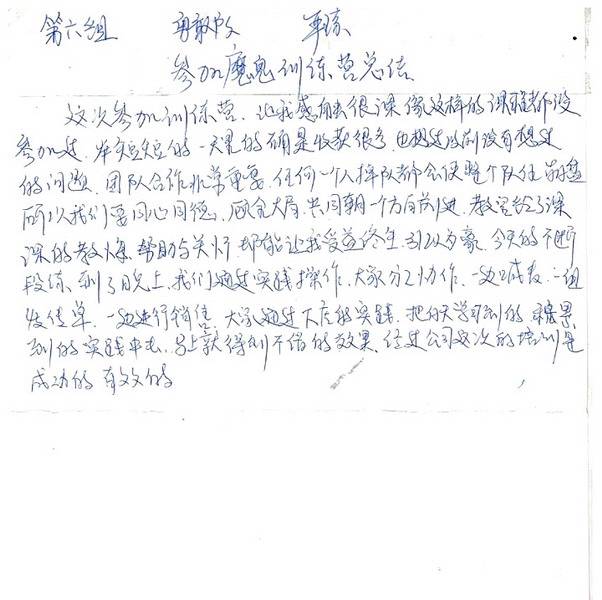 第六组 勇敢队
参加魔鬼训练营总结
这次参加训练营、让我感触很深 像这样的课程都没
参加过、在短短的一天里的确是收获很多 也想过以前没有想过
的问题、团队合作非常重要、任何一个人掉队都会使整个队伍
所以我们要同心同德、顾全大局、共同朝一个方向前进、教官给了深
深的教悔、帮助与关怀 都能让我受益终生、引以为豪、今天的不断
段练、到了晚上、我们通过实践操作、大家分工协作、一边喊麦、一组
发传单、一边进行销售、大家通过下店的实践、把白天学习到的
到的实践中去、马上就得到不错的效果、经过公司这次的培训是
成功的 有效的